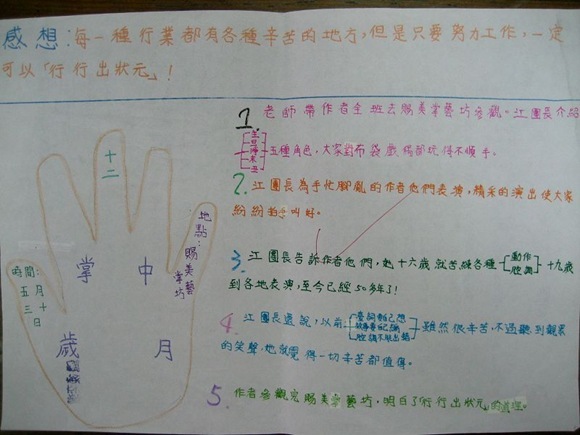 感想:每一種行業都有各種辛苦的地方,但是只要努力工作,一定
可以「行行出狀元」!
1 老師帶作者全班去賜美掌藝坊參觀。江團長介紹
生旦淨末丑
五種角色,大家對布袋戲偶都玩得不順手。
2. 江團長為手忙腳亂的作者他們表演,精采的演出使大家
紛紛拍手叫好。
3. 江團長告訴作者他們,她十六歲就苦練各種 動作 腔調 十九歲
到各地表演,至今已經50多年了!
4. 江團長還說,以前
雖然很辛苦,不過聽到觀眾
的笑聲,她就覺得一切辛苦都值得。
5. 作者參觀完賜美掌藝坊,明白了「行行出狀元」的道理。
十二
掌中
歲月
地點:賜美藝
掌坊
時間:十
月五
三日